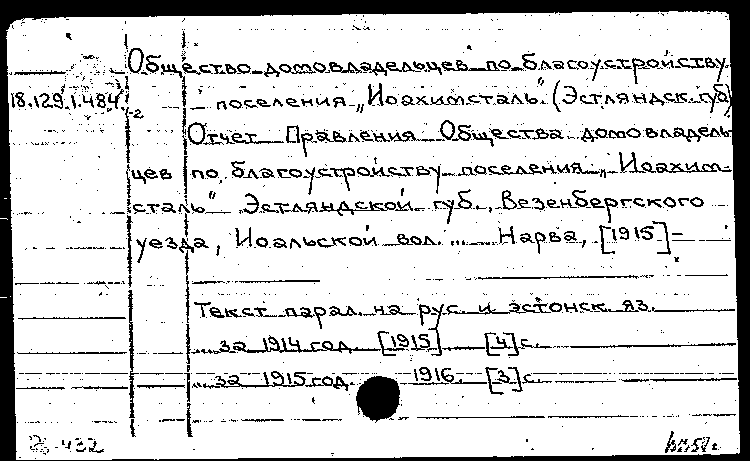 Общество домовладельцев по благоустройству
18.129.1.484/-2 поселения „Иоахимсталь". (Эстляндск. губ)
Отчет Правления Общества домовладель
цев по благоустройству поселения „Иоахим-
сталь" Эстляндской губ., Везенбергского
уезда, Иоальской вол. ... Нарва, [1915]-
Текст парал. на рус. и эстонск. яз.
... за 1914 год. [1915]. [4] с.
... за 1915 год. 1916. [3] с.
432